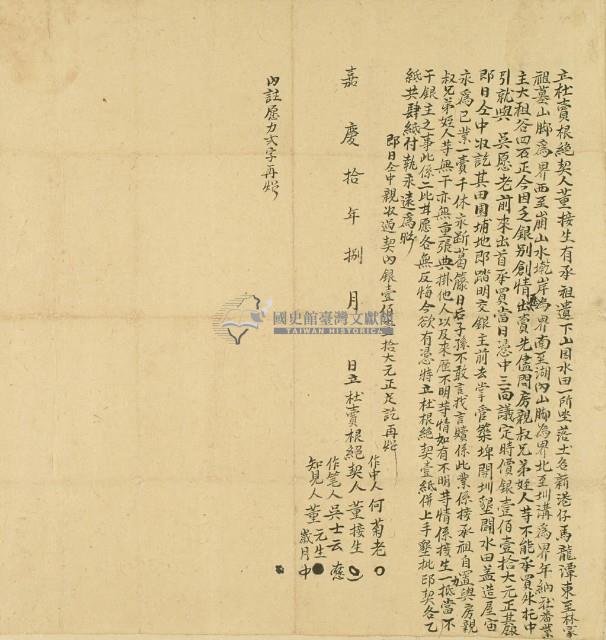 立杜賣根絕契人董接生有承祖遺下山園水田一所坐落土名新港仔馬龍潭東至林家
祖墓山脚為界西至崩山水墘岸為界南至湖內山脚為界北至圳溝為界年納社番業
主大租谷四石正今因乏銀別創情愿出賣先儘問房親叔兄弟姪人等不能承買外托中
引就與吳愿老前來出首承買當日憑中三面議定時價銀壹佰壹拾大元正其銀
即日仝中收訖其田園埔地即踏明交銀主前去掌管築埤開圳墾闢水田蓋造屋宙
永為己業一賣千休永斷葛籐日后子孫不敢言找言贖係此業係接承祖自置與房親
叔兄弟姪人等無干亦無重張典掛他人以及來歷不明等情如有不明等情係接生一力抵當不
干銀主之事此係二比甘愿各無反悔今欲有憑特立杜賣根絕契壹紙併上手墾批印契各乙
紙共肆紙付執永遠為炤
即日仝中親收過契內銀壹佰壹拾大元正足訖再炤
嘉慶拾年捌月 日立杜賣根絕契人董接生
作中人何菊老
作筆人吳士云
知見人董元生
歲月
內註愿力弍字再炤
國史館臺灣文獻館
TAIWAN HISTORICA